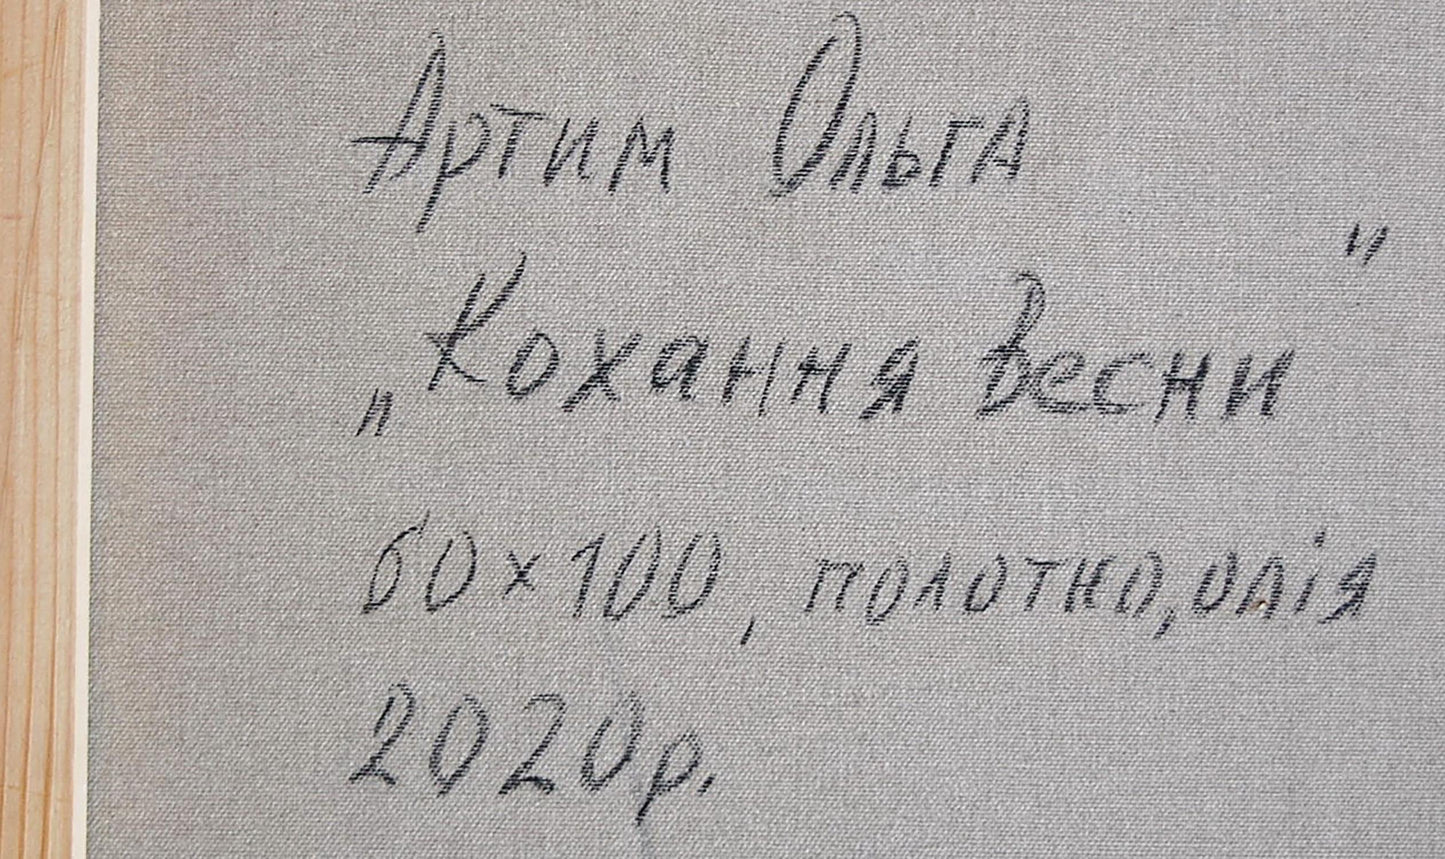 Артим Ольга
„Кохання весни"
60×100, полотно, олія
2020р.